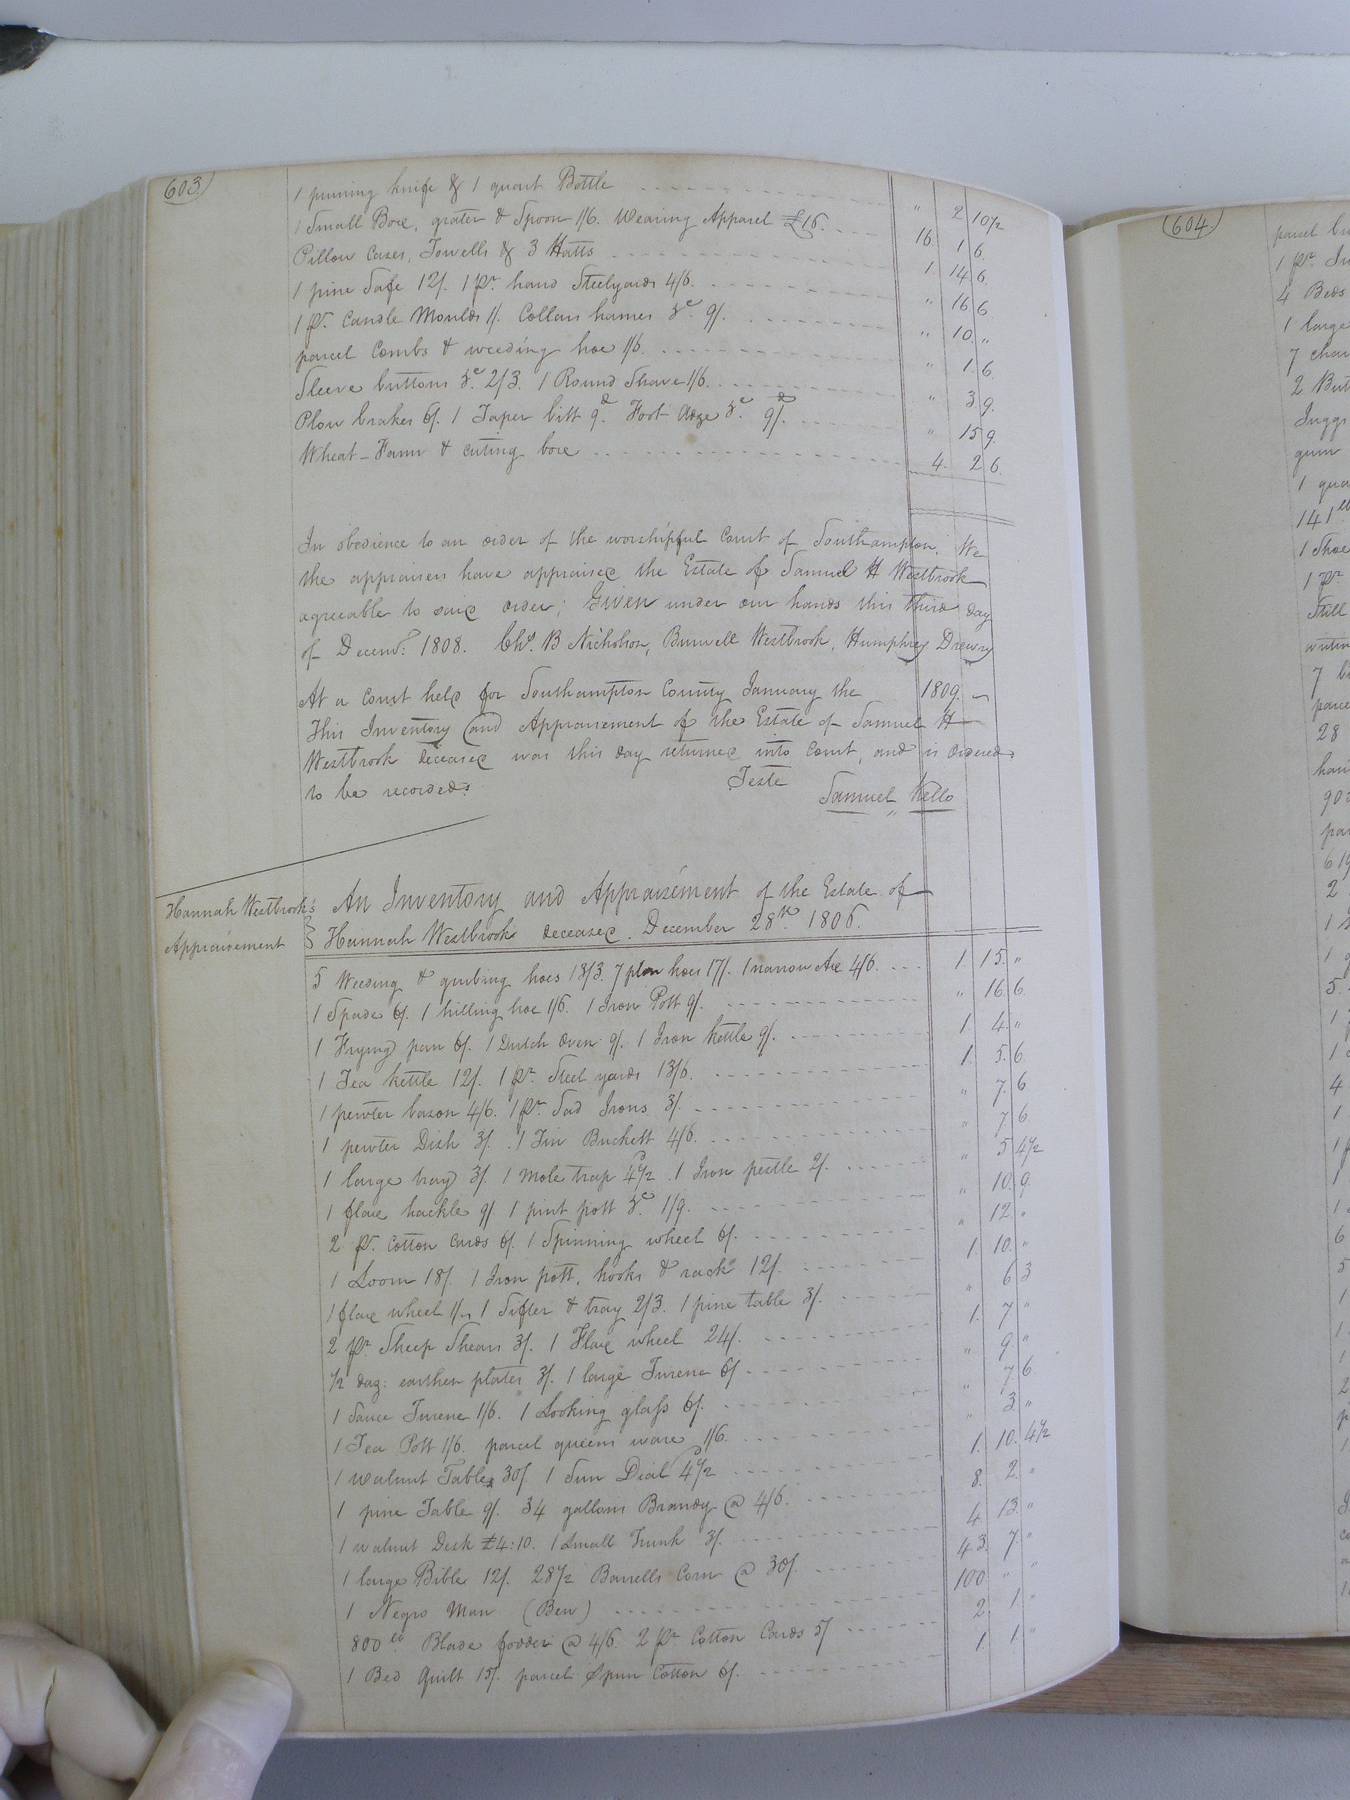 603
1 pruning knife & 1 quart Bottle " 2 10½
1 Small Box, grater & Spoon 1/6. Wearing Apparel £16. 16 1 6.
Pillow Cases, Towells & 3 Hatts 1 14 6.
1 pine Safe 12/. 1 pr. hand Steelyards 4/6. " 16 6
1 pr. Candle Moulds 1/. Collars hames &c 9/. " 10 "
parcel Combs & weeding hoe 1/6. " 1 6.
Sleeve buttons &c. 2/3. 1 Round Shave 1/6. " 3 9.
Plow brakes 6/. 1 Taper bitt 9d. Foot Adze &c 9/. " 15 9.
Wheat-Fann & cuting box 4. 2 6.
In obedience to an order of the worshipful Court of Southampton. We
the appraisers have appraised the Estate of Samuel H Westbrook
agreeable to said order; Given under our hands this third day
of Decemr: 1808. Chs. B Nicholson, Burwell Westbrook, Humphrey Drewry
At a Court held for Southampton County January the 1809.
This Inventory and Appraisement of the Estate of Samuel H
Westbrook deceased was this day returned into Court, and is ordered
to be recorded. Teste
Samuel Kello
Hannah Westbrook's
Appraisement
An Inventory and Appraisement of the Estate of
Hannah Westbrook deceased. December 28th 1806.
5 Weeding & grubing hoes 13/3. 7 plow hoes 17/. 1 narrow Axe 4/6. 1. 15. "
1 Spade 6/. 1 hilling hoe 1/6. 1 Iron Pott 9/. " 16 6.
1 Frying pan 6/. 1 Dutch Oven 9/. 1 Iron Kettle 9/. 1. 4. "
1 Tea Kettle 12/. 1 pr. Steelyards 13/6. 1. 5. 6
1 pewter bason 4/6. 1 pr. Sad Irons 3/. " 7. 6
1 pewter Dish 3/. 1 Tin Buckett 4/6. " 7 6
1 large tray 3/. 1 Mole trap 4½d. 1 Iron pestle 2/. " 5 4½
1 flax hackle 9/ 1 pint pott &c 1/9. " 10. 9
2 pr. Cotton Cards 6/. 1 Spinning wheel 6/. " 12. "
1 Loom 18/. 1 Iron pott, hooks & rack 12/. 1. 10. "
1 flax wheel 1/. 1 Sifter & tray 2/3. 1 pine table 3/. " 6 3
2 pr. Sheep Shears 3/. 1 Flax wheel 24/. 1. 7 "
½ doz: earthen plates 3/. 1 large Turene 6/. " 9. "
1 Sauce Turene 1/6. 1 Looking glass 6/. " 7 6
1 Tea Pott 1/6. parcel queens ware 1/6. " 3 "
1 walnut Table 30/. 1 Sun Dial 4½d 1. 10. 4½
1 pine Table 9/. 34 gallons Brandy @ 4/6. 8. 2. "
1 walnut Desk £4:10. 1 Small Trunk 3/. 4 13. "
1 large Bible 12/. 28½ Barrells Corn @ 30/. 43. 7. "
1 Negro Man (Ben) 100 " "
800 lb Blade fodder @ 4/6. 2 pr. Cotton Cards 5/ 2. 1 "
1 Bed Quilt 15/. parcel Spun Cotton 6/. 1. 1. "
604
parcel
1 pr.
4 Beds
1 large
7
2
Juggs
gum
141 lb
1 Shoe
1 pr
Still
7
28